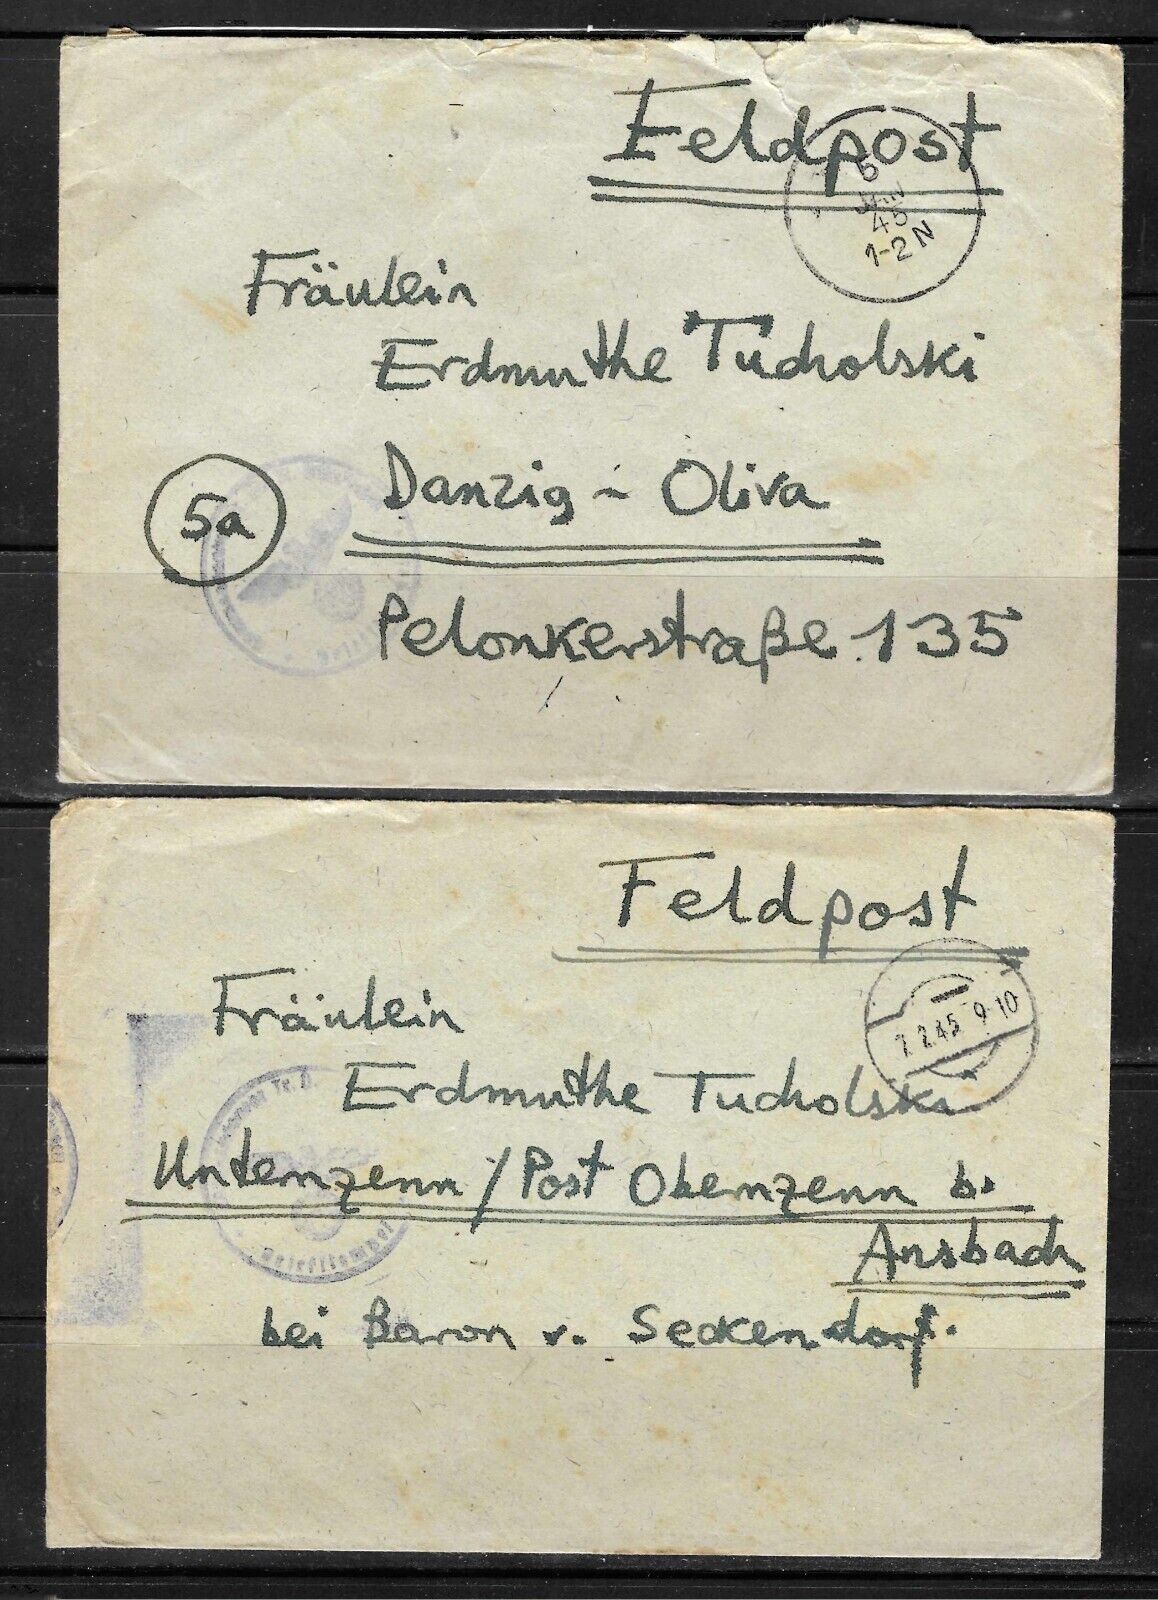 Feldpost
5
JAN
45
1-2N
Fräulein
Erdmuthe Tucholski
5a
Danzig - Oliva
Pelonkerstraße 135
Feldpost
7.2.45 9-10
Fräulein
Erdmuthe Tucholski
Unternzenn / Post Obernzenn b.
Ansbach
Briefstempel
bei Baron v. Seckendorf.